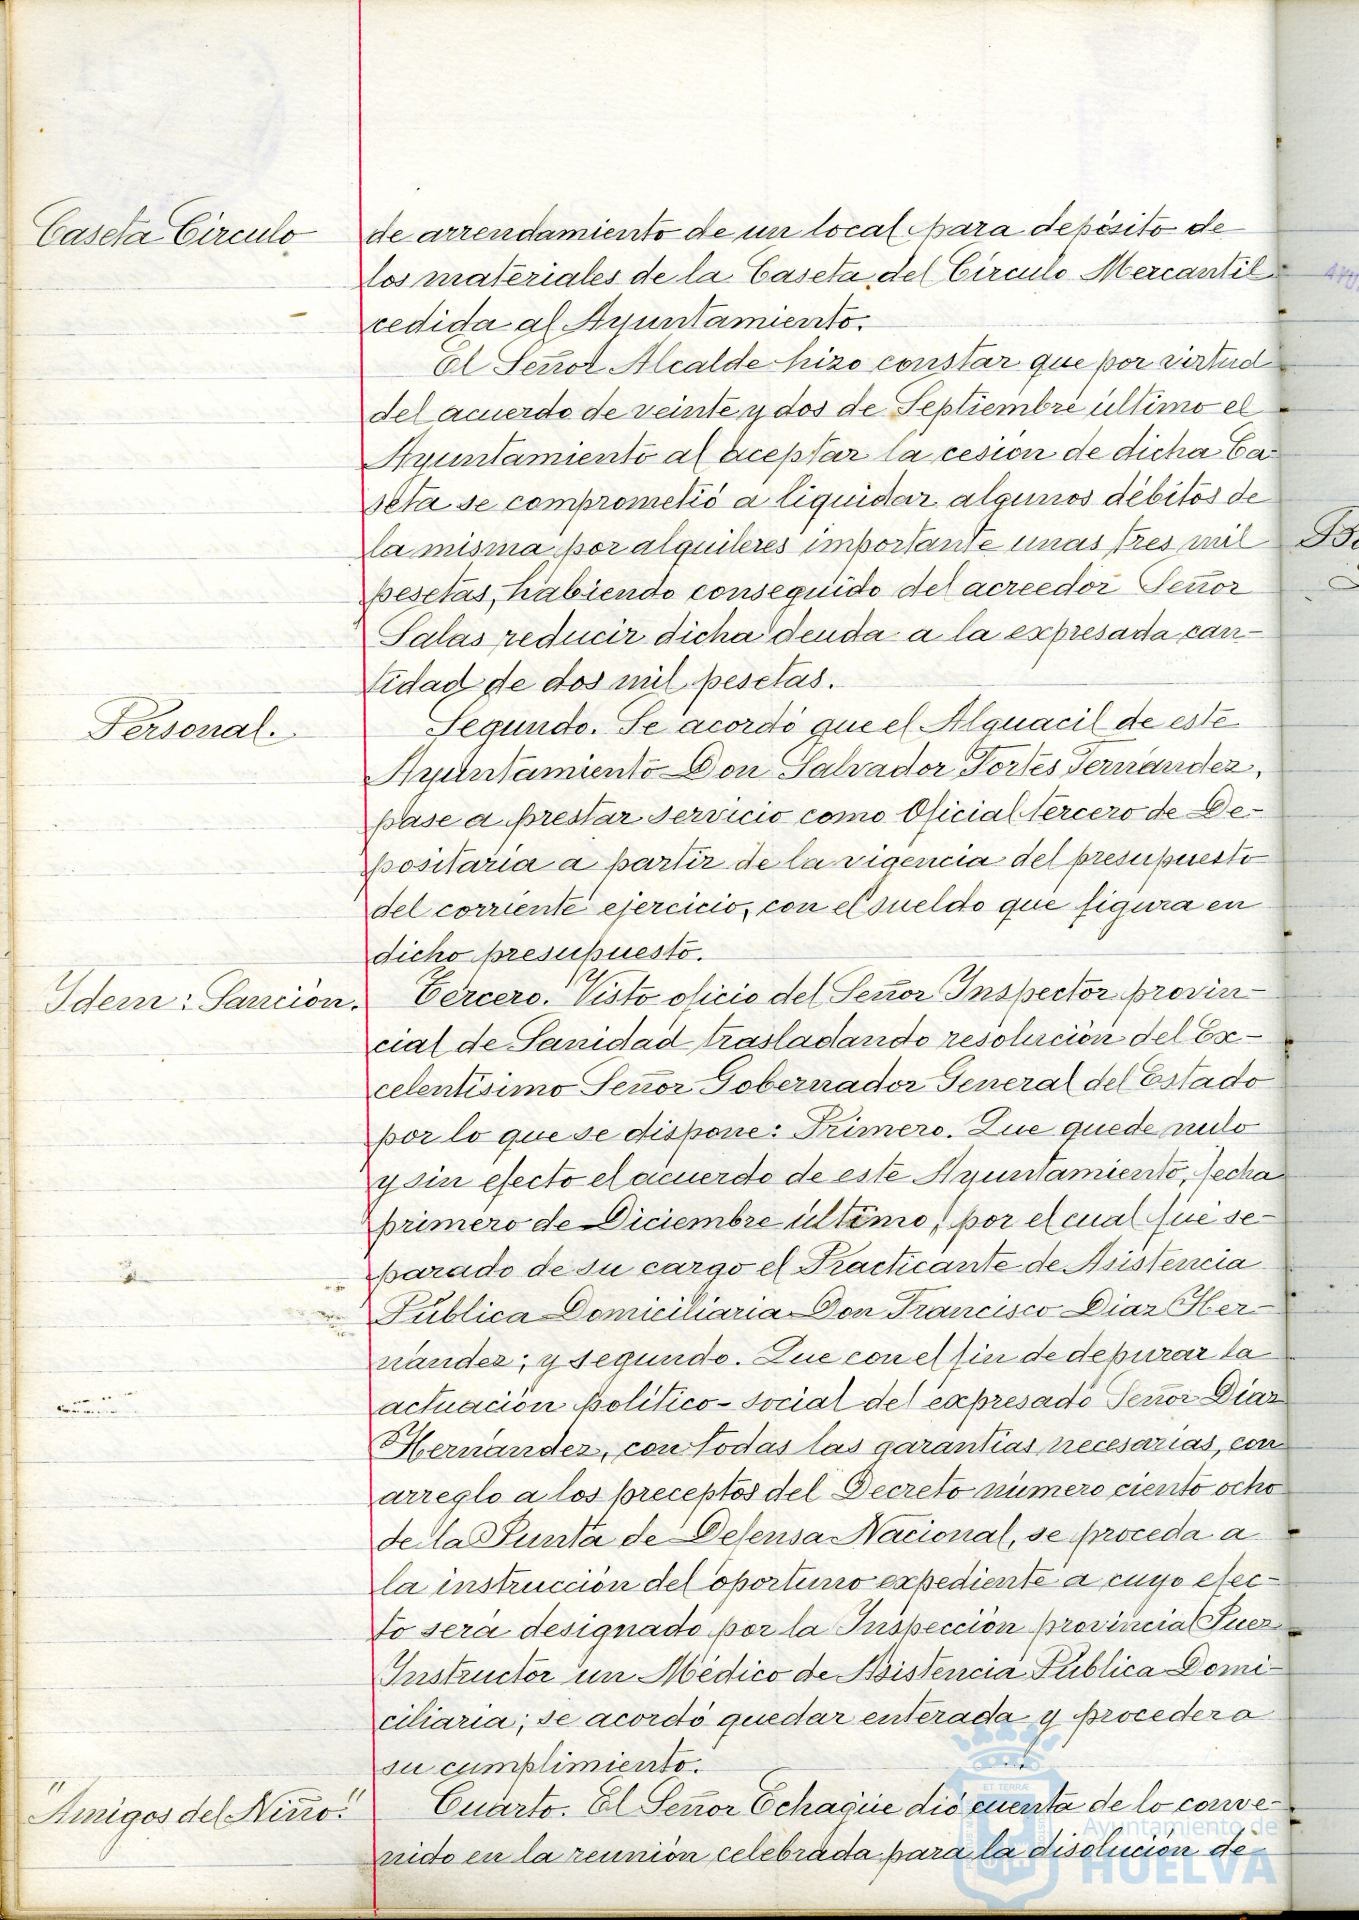 Caseta Círculo
de arrendamiento de un local para depósito de
los materiales de la Caseta del Círculo Mercantil
cedida al Ayuntamiento.
El Señor Alcalde hizo constar que por virtud
del acuerdo de veinte y dos de Septiembre último el
Ayuntamiento al aceptar la cesión de dicha Ca-
seta se comprometió a liquidar algunos débitos de
la misma por alquileres importante unas tres mil
pesetas, habiendo conseguido del acreedor Señor
Salas reducir dicha deuda a la expresada can-
tidad de dos mil pesetas.
Personal.
Segundo. Se acordó que el Alguacil de este
Ayuntamiento Don Salvador Fortes Fernández,
pase a prestar servicio como Oficial tercero de De-
positaría a partir de la vigencia del presupuesto
del corriente ejercicio, con el sueldo que figura en
dicho presupuesto.
Idem: Sanción.
Tercero. Visto oficio del Señor Inspector provin-
cial de Sanidad trasladando resolución del Ex-
celentísimo Señor Gobernador General del Estado
por lo que se dispone: Primero. Que quede nulo
y sin efecto el acuerdo de este Ayuntamiento, fecha
primero de Diciembre último, por el cual fué se-
parado de su cargo el Practicante de Asistencia
Pública Domiciliaria Don Francisco Díaz Her-
nández; y segundo. Que con el fin de depurar la
actuación político-social del expresado Señor Díaz
Hernández, con todas las garantías necesarias, con
arreglo a los preceptos del Decreto número ciento ocho
de la Junta de Defensa Nacional, se proceda a
la instrucción del oportuno expediente a cuyo efec-
to será designado por la Inspección provincial Juez
Instructor un Médico de Asistencia Pública Domi-
ciliaria; se acordó quedar enterada y proceder a
su cumplimiento.
"Amigos del Niño."
Cuarto. El Señor Echagüe dió cuenta de lo conve-
nido en la reunión celebrada para la disolución de
Ayuntamiento de
HUELVA